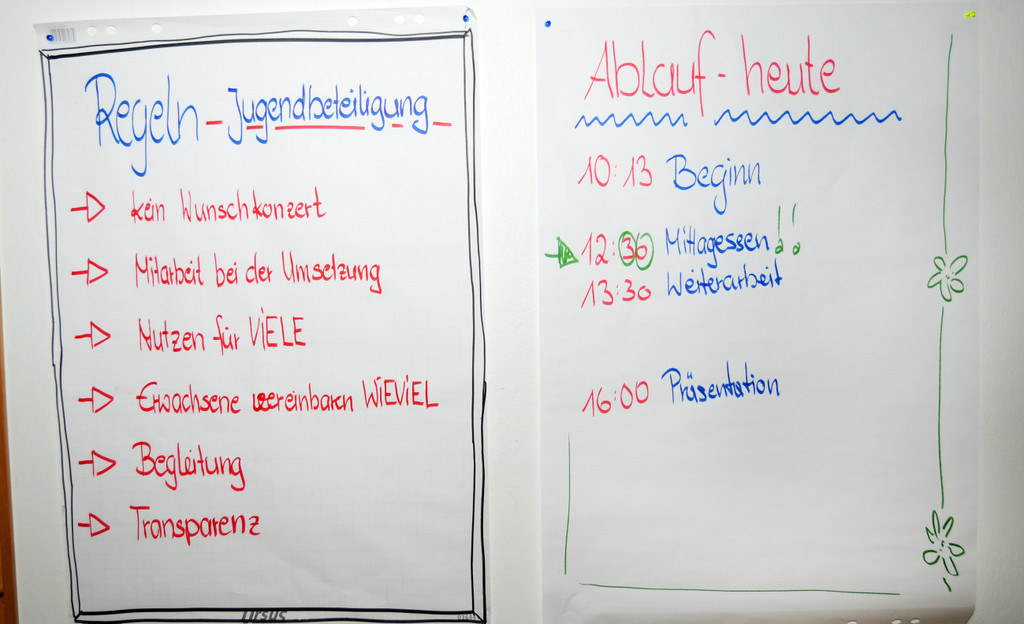 Regeln - Jugendbeteiligung
kein Wunschkonzert
Mitarbeit bei der Umsetzung
Nutzen für ViELE
Erwachsene vereinbaren WiEViEL
Begleitung
Transparenz
Ursus
Ablauf - heute
10:13 Beginn
12:30 Mittagessen!!
13:30 Weiterarbeit
16:00 Präsentation